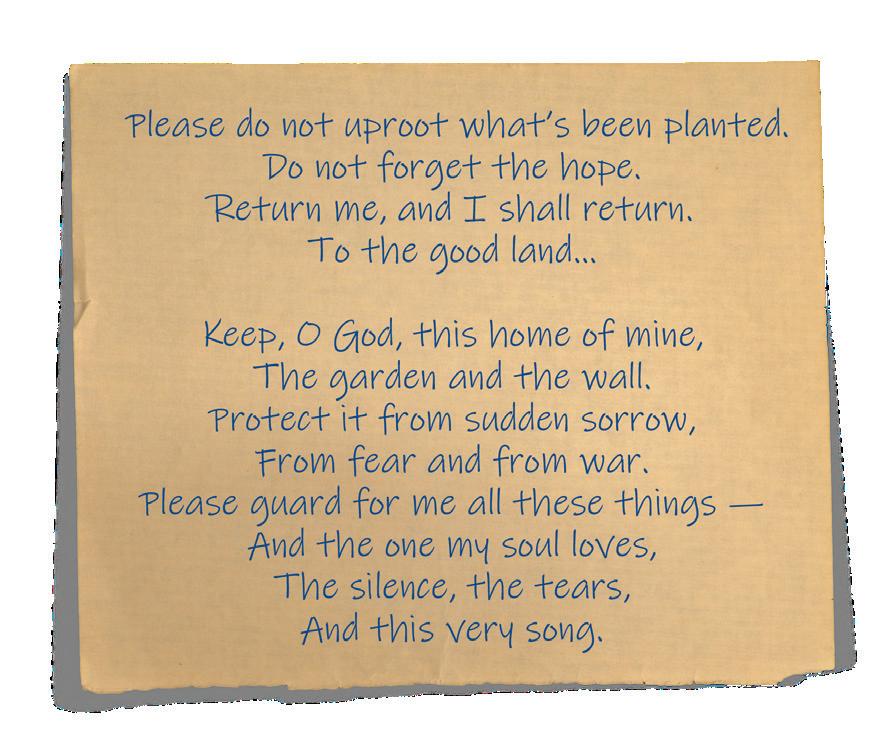 Please do not uproot what's been planted.
Do not forget the hope.
Return me, and I shall return.
To the good land...
Keep, O God, this home of mine,
The garden and the wall.
Protect it from sudden sorrow,
From fear and from war.
Please guard for me all these things —
And the one my soul loves,
The silence, the tears,
And this very song.